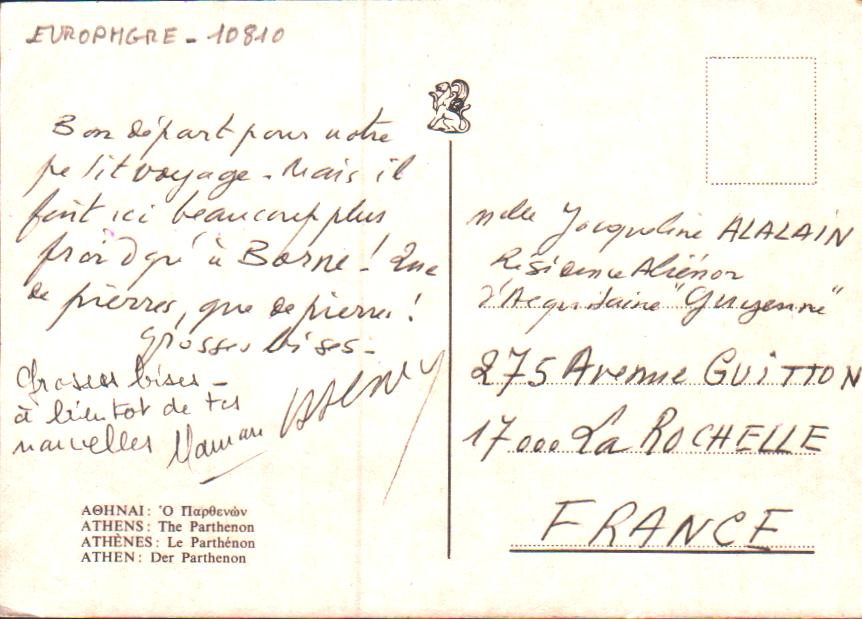 EUROPHGRE - 10810
Bon départ pour notre
petit voyage - Mais il
fait ici beaucoup plus
froid qu'à Borne! Que
de pierres, que de pierres!
Grosses bises -
Grosses bises -
à bientot de tes
nouvelles Maman
ΑΘΗΝΑΙ: Ὁ Παρθενών
ATHENS: The Parthenon
ATHÈNES: Le Parthénon
ATHEN: Der Parthenon
Mlle Jacqueline ALALAIN
Résidence Aliénor
d'Aequitaine "Guyenne"
275 Avenue GUITTON
17000 La ROCHELLE
FRANCE